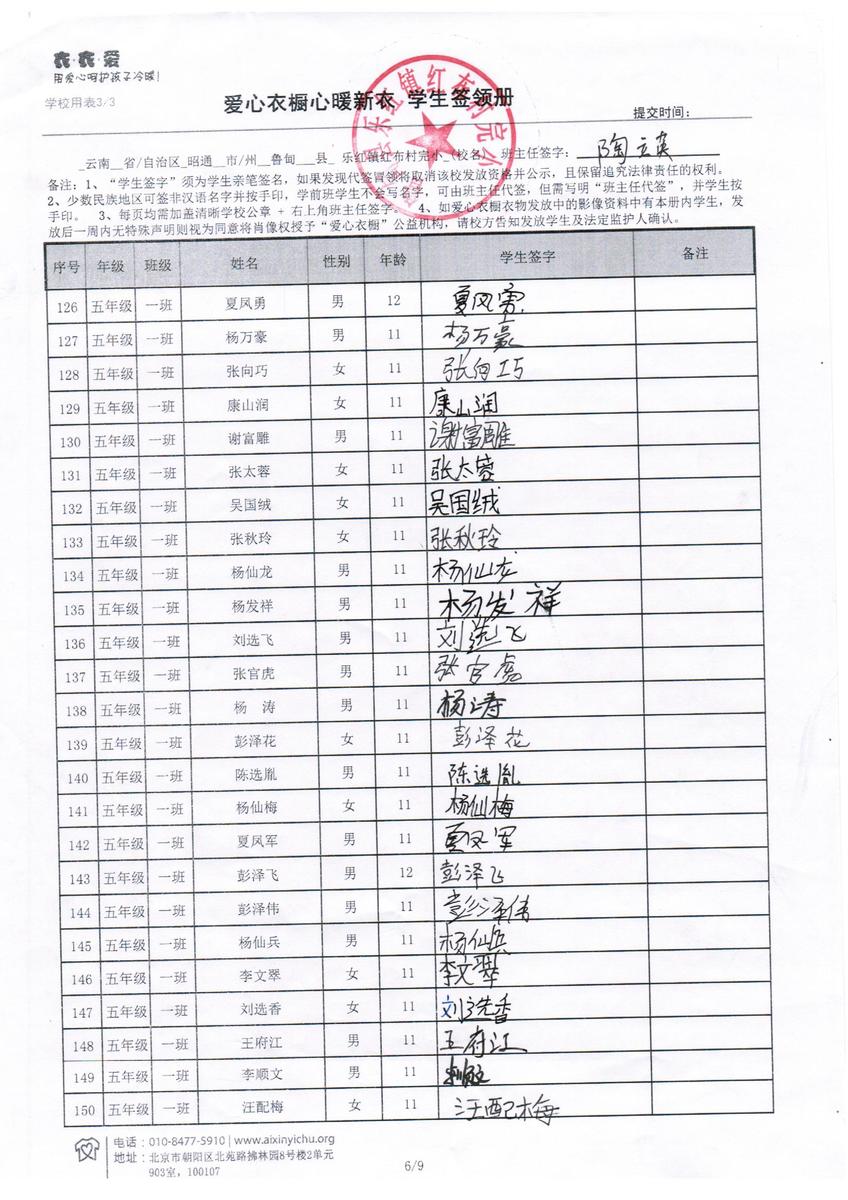 衣·衣·爱
用爱心呵护孩子冷暖!
学校用表3/3
爱心衣橱心暖新衣 学生签领册
提交时间:
乐红镇红布村完小
_云南__省/自治区_昭通__市/州__鲁甸___县_ 乐红镇红布村完小_(校名) 班主任签字: 陶立英
备注: 1、“学生签字”须为学生亲笔签名, 如果发现代签冒领将取消该校发放资格并公示, 且保留追究法律责任的权利。
2、少数民族地区可签非汉语名字并按手印, 学前班学生不会写名字, 可由班主任代签, 但需写明“班主任代签”, 并学生按
手印。 3、每页均需加盖清晰学校公章 + 右上角班主任签字。 4、如爱心衣橱衣物发放中的影像资料中有本册内学生, 发
放后一周内无特殊声明则视为同意将肖像权授予“爱心衣橱”公益机构, 请校方告知发放学生及法定监护人确认。
序号 年级 班级 姓名 性别 年龄 学生签字 备注
126 五年级 一班 夏凤勇 男 12 夏凤勇
127 五年级 一班 杨万豪 男 11 杨万豪
128 五年级 一班 张向巧 女 11 张向巧
129 五年级 一班 康山润 女 11 康山润
130 五年级 一班 谢富雕 男 11 谢富雕
131 五年级 一班 张太蓉 女 11 张太蓉
132 五年级 一班 吴国绒 女 11 吴国绒
133 五年级 一班 张秋玲 女 11 张秋玲
134 五年级 一班 杨仙龙 男 11 杨仙龙
135 五年级 一班 杨发祥 男 11 杨发祥
136 五年级 一班 刘选飞 男 11 刘选飞
137 五年级 一班 张官虎 男 11 张官虎
138 五年级 一班 杨 涛 男 11 杨涛
139 五年级 一班 彭泽花 女 11 彭泽花
140 五年级 一班 陈选胤 男 11 陈选胤
141 五年级 一班 杨仙梅 女 11 杨仙梅
142 五年级 一班 夏凤军 男 11 夏凤军
143 五年级 一班 彭泽飞 男 12 彭泽飞
144 五年级 一班 彭泽伟 男 11 彭泽伟
145 五年级 一班 杨仙兵 男 11 杨仙兵
146 五年级 一班 李文翠 女 11 李文翠
147 五年级 一班 刘选香 女 11 刘选香
148 五年级 一班 王府江 男 11 王府江
149 五年级 一班 李顺文 男 11
150 五年级 一班 汪配梅 女 11 汪配梅
电话: 010-8477-5910 | www.aixinyichu.org
地址: 北京市朝阳区北苑路拂林园8号楼2单元
903室, 100107
6/9